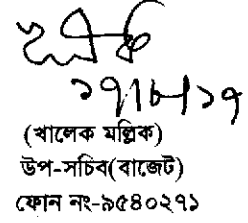 ১৭/৮/১৭
(খালেক মল্লিক)
উপ-সচিব(বাজেট)
ফোন নং-৯৫৪০২৭১